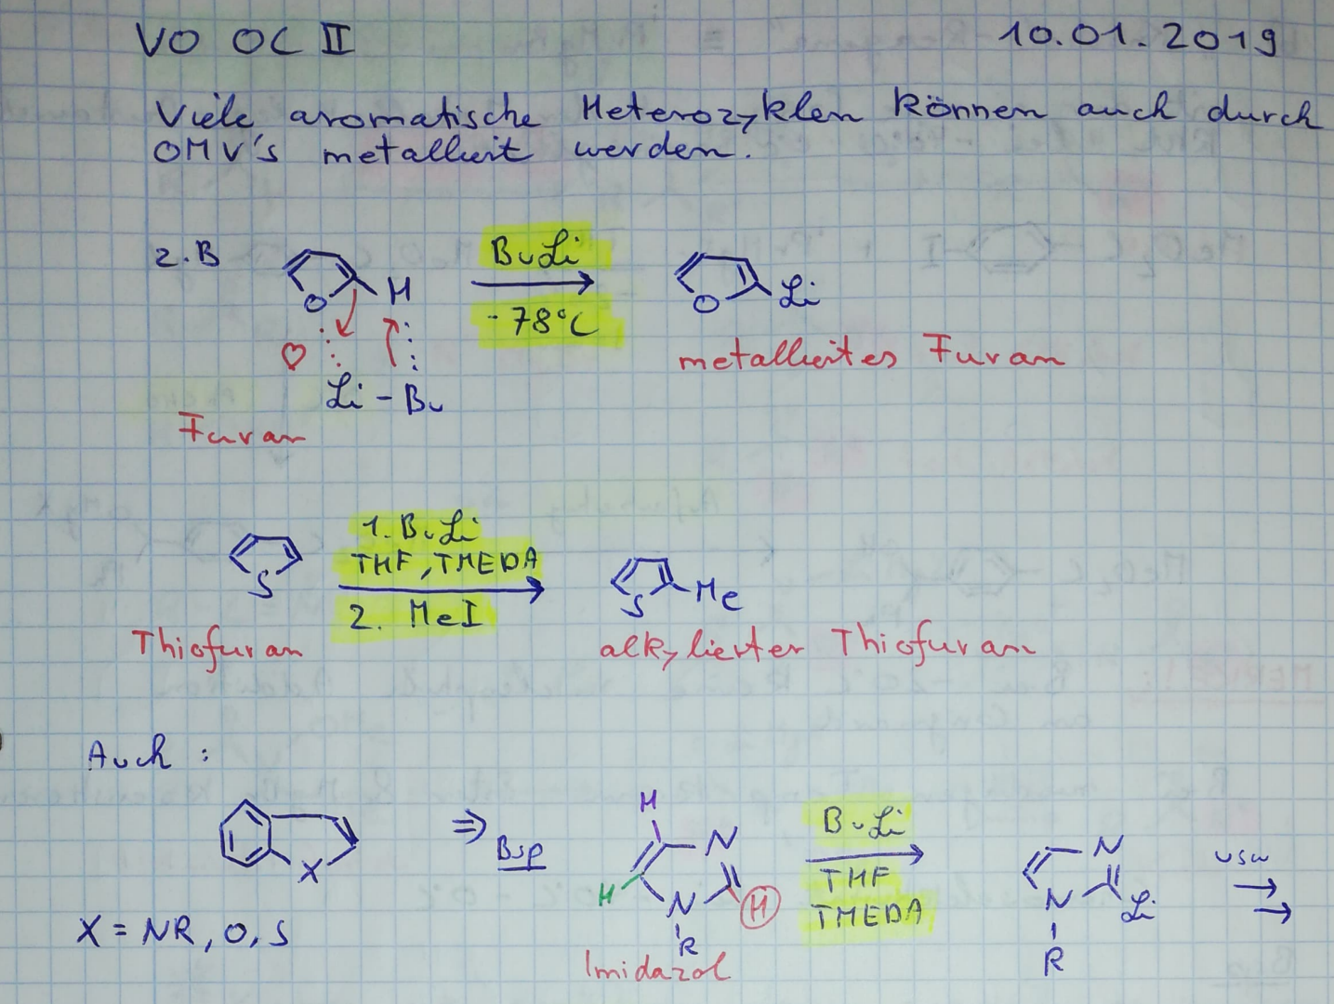 VO OC II 10.01.2019
Viele aromatische Heterozyklen können auch durch
OMV's metalliert werden.
z.B
O H
BuLi
-78°C
O Li
Li - Bu
Furan
metalliertes Furan
S
1. BuLi
THF, TMEDA
2. MeI
S Me
Thiofuran
alkylierter Thiofuran
Auch :
X
X = NR, O, S
⇒ Bsp
H
N
H N H
R
Imidazol
BuLi
THF
TMEDA
N
N Li
R
usw